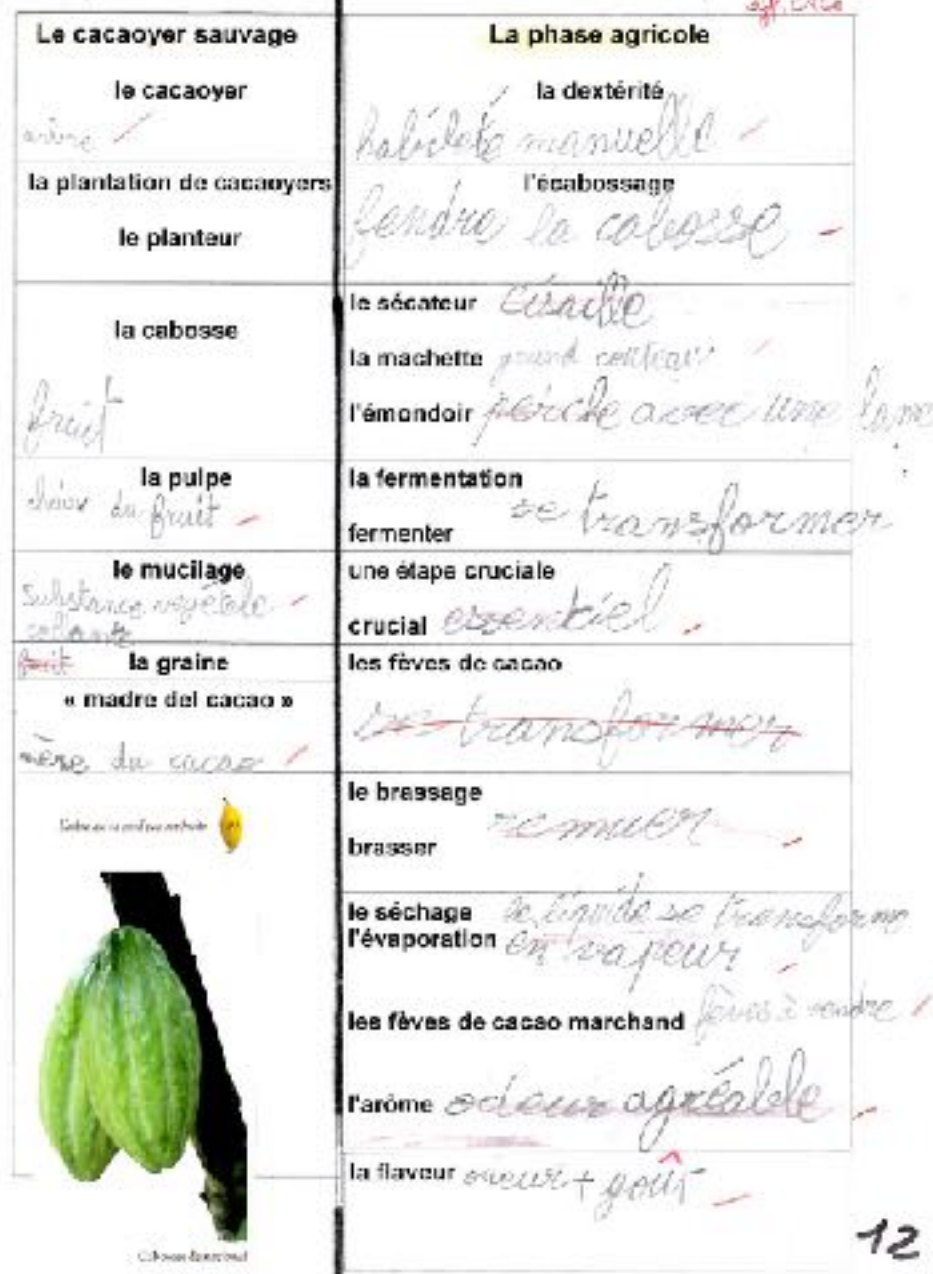 Le cacaoyer sauvage
le cacaoyer
arbre
la plantation de cacaoyers
le planteur
la cabosse
fruit
la pulpe
chair du fruit
le mucilage
substance végétale
collante
fruit
la graine
« madre del cacao »
mère du cacao
La phase agricole
la dextérité
habileté manuelle
l'écabossage
fendre la cabosse
le sécateur cisaille
la machette grand couteau
l'émondoir perche avec une lame
la fermentation
se transformer
fermenter
une étape cruciale
crucial essentiel
les fèves de cacao
se transformer
le brassage
remuer
brasser
le séchage le liquide se transforme
l'évaporation en vapeur
les fèves de cacao marchand fèves à vendre
l'arôme odeur agréable
la flaveur + goût
12